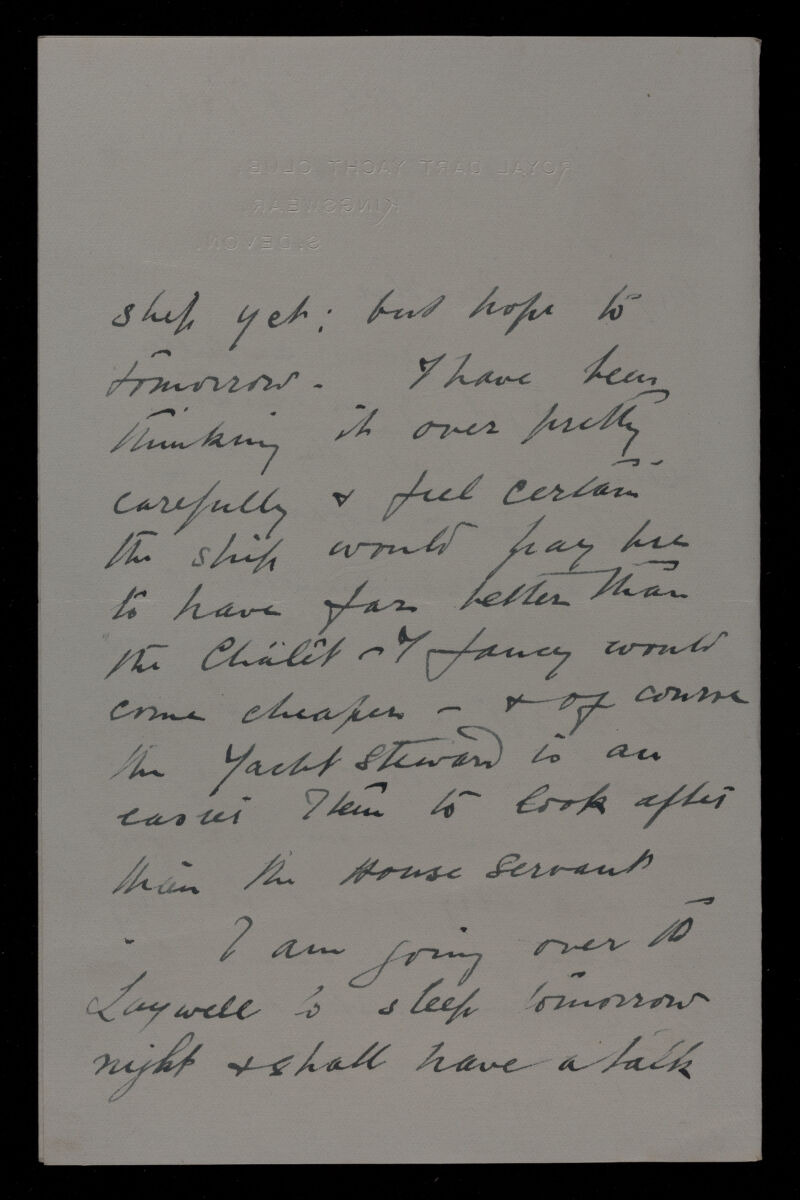 ROYAL DART YACHT CLUB.
KINGSWEAR.
S. DEVON.
ship yet; but hope to
tomorrow - I have been
thinking it over pretty
carefully & feel certain
the ship would pay me
to have far better than
the Chälêt - I fancy would
come cheaper - & of course
the Yacht Steward is an
easier Item to look after
than the House Servant
- I am going over to
Laywell to sleep tomorrow
night & shall have a talk